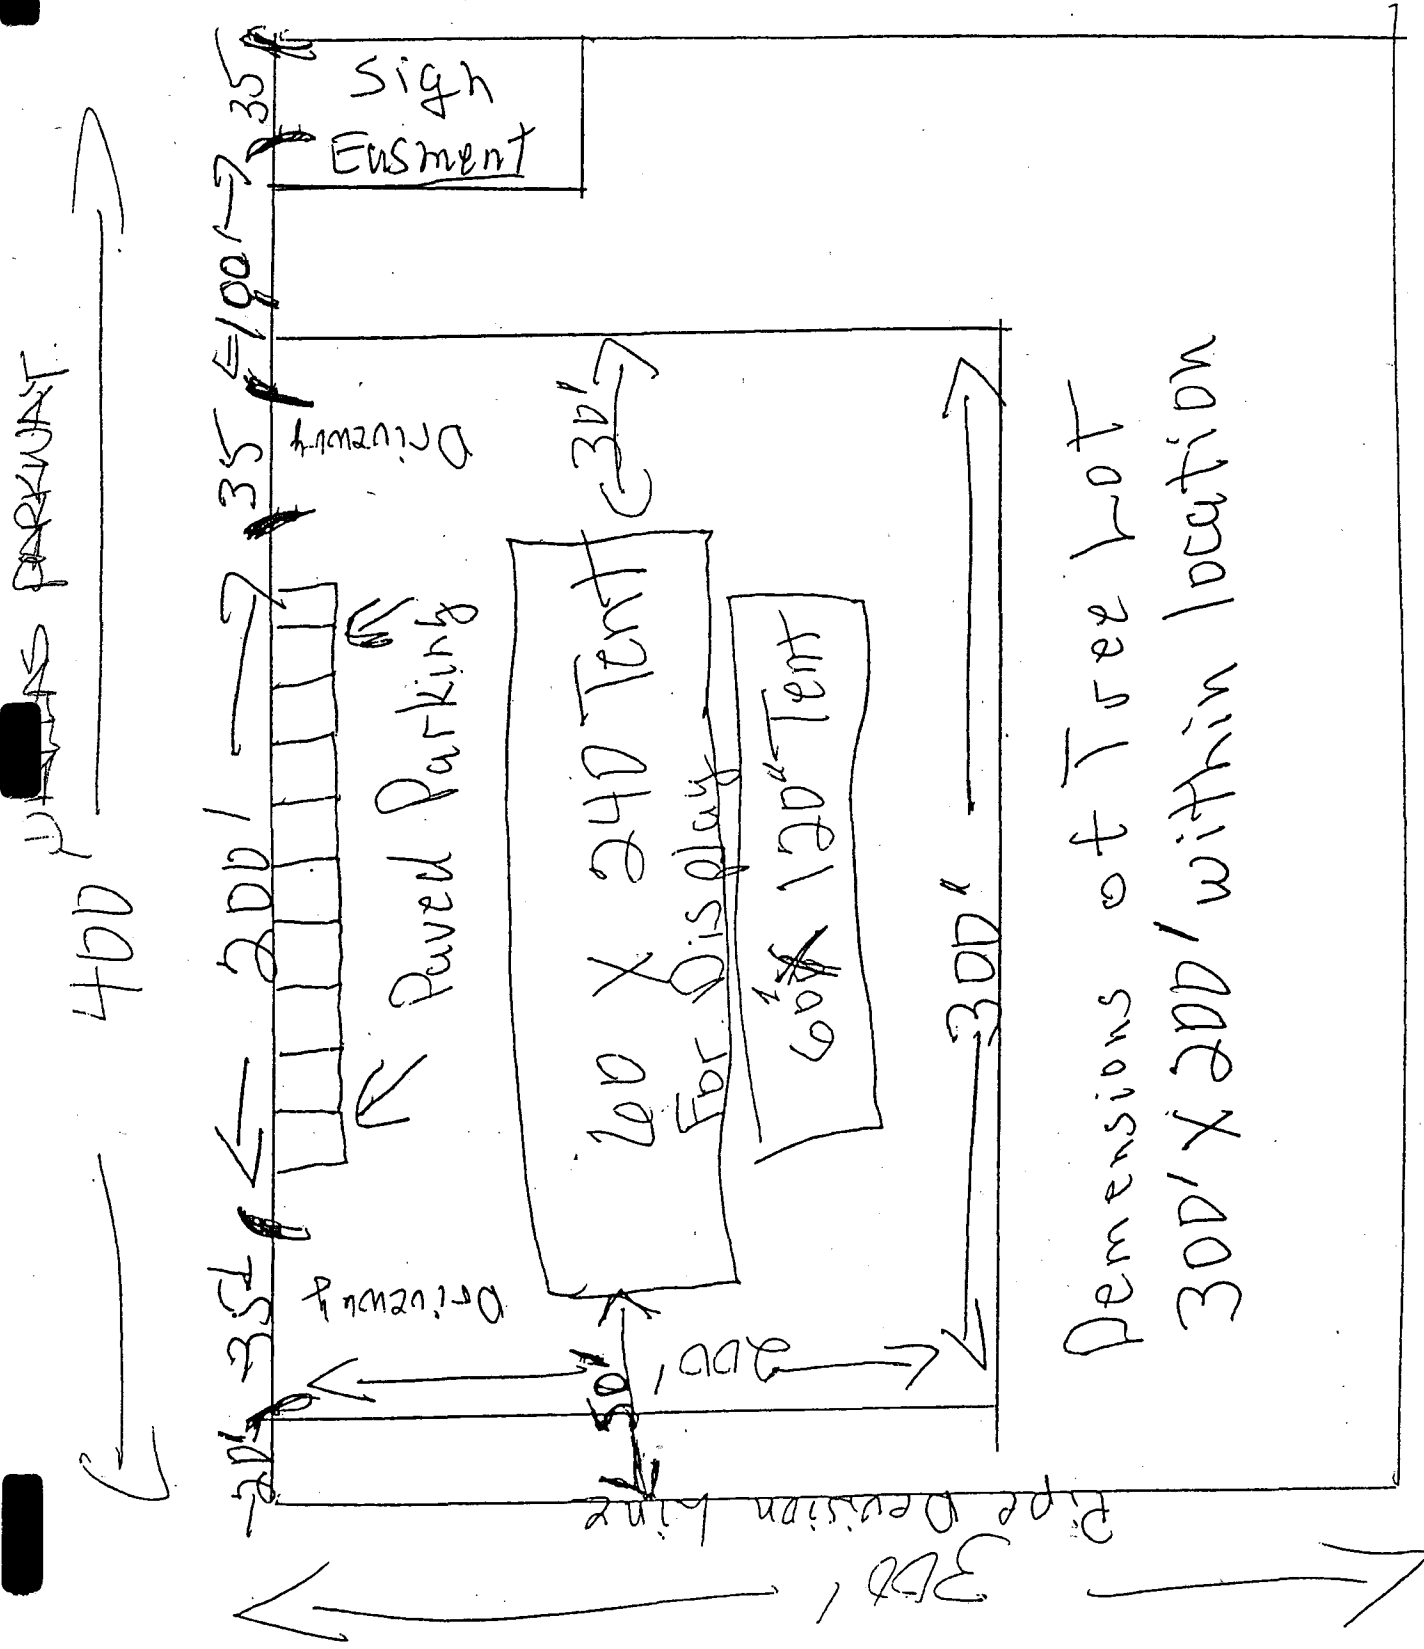 PARKWAY
400'
35
Sign
Easment
90'
35
Driveway
200'
35'
Driveway
20'
Paved Parking
30'
60 X 240 Tent
For Display
60' X 120' Tent
50'
200'
300'
Demensions of Tree Lot
300' X 200' within location
Pipe Devision Line
300'